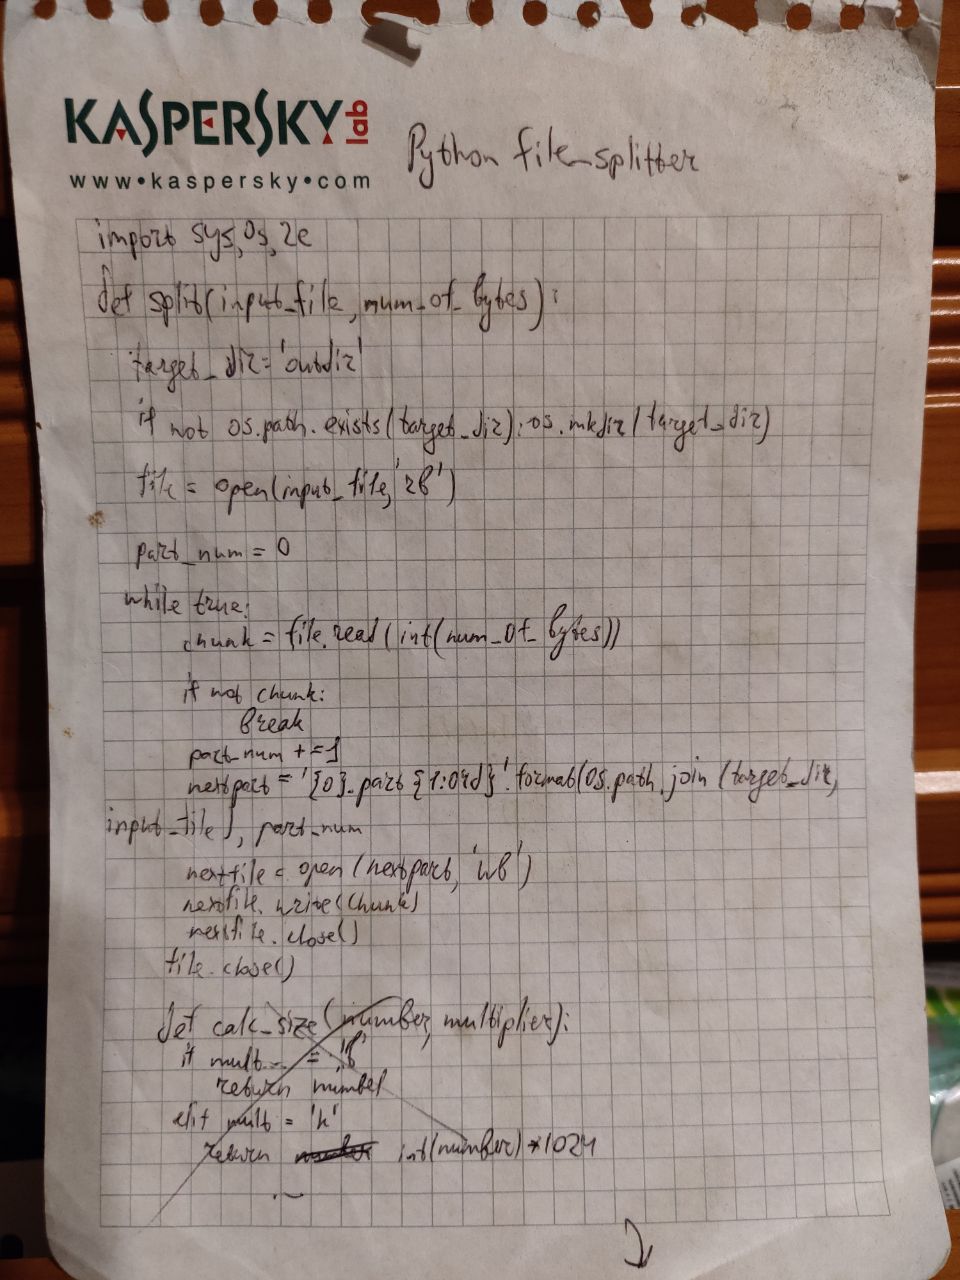 KASPERSKY lab
www•kaspersky•com
Python file_splitter
import sys, os, re
def split(input_file, num_of_bytes):
target_dir='outdir'
if not os.path.exists(target_dir): os.mkdir(target_dir)
file = open(input_file, 'rb')
part_num = 0
while true:
chunk = file.read(int(num_of_bytes))
if not chunk:
break
part_num +=1
nextpart = '{0}_part{1:04d}'.format(os.path.join(target_dir,
input_file), part_num
nextfile = open(nextpart, 'wb')
nextfile.write(chunk)
nextfile.close()
file.close()
def calc_size(number, multiplier):
if mult... = 'b'
return number
elif mult = 'k'
return int(number)*1024